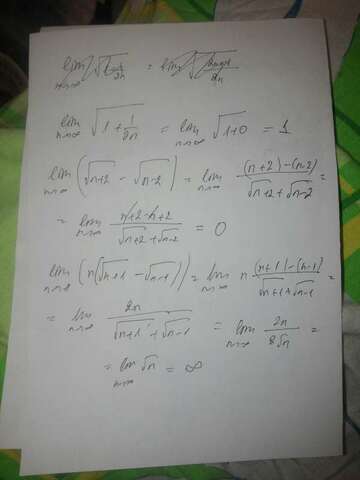 lim n→∞ √(1 + 1/2n) = lim n→∞ √(1+0) = 1
lim n→∞ (√(n+2) - √(n-2)) = lim n→∞ ((n+2)-(n-2))/(√(n+2) + √(n-2)) =
= lim n→∞ (n+2-n+2)/(√(n+2) + √(n-2)) = 0
lim n→∞ (n(√(n+1) - √(n-1))) = lim n→∞ n ((n+1)-(n-1))/(√(n+1) + √(n-1)) =
= lim n→∞ 2n/(√(n+1) + √(n-1)) = lim n→∞ 2n/(2√n) =
= lim n→∞ √n = ∞